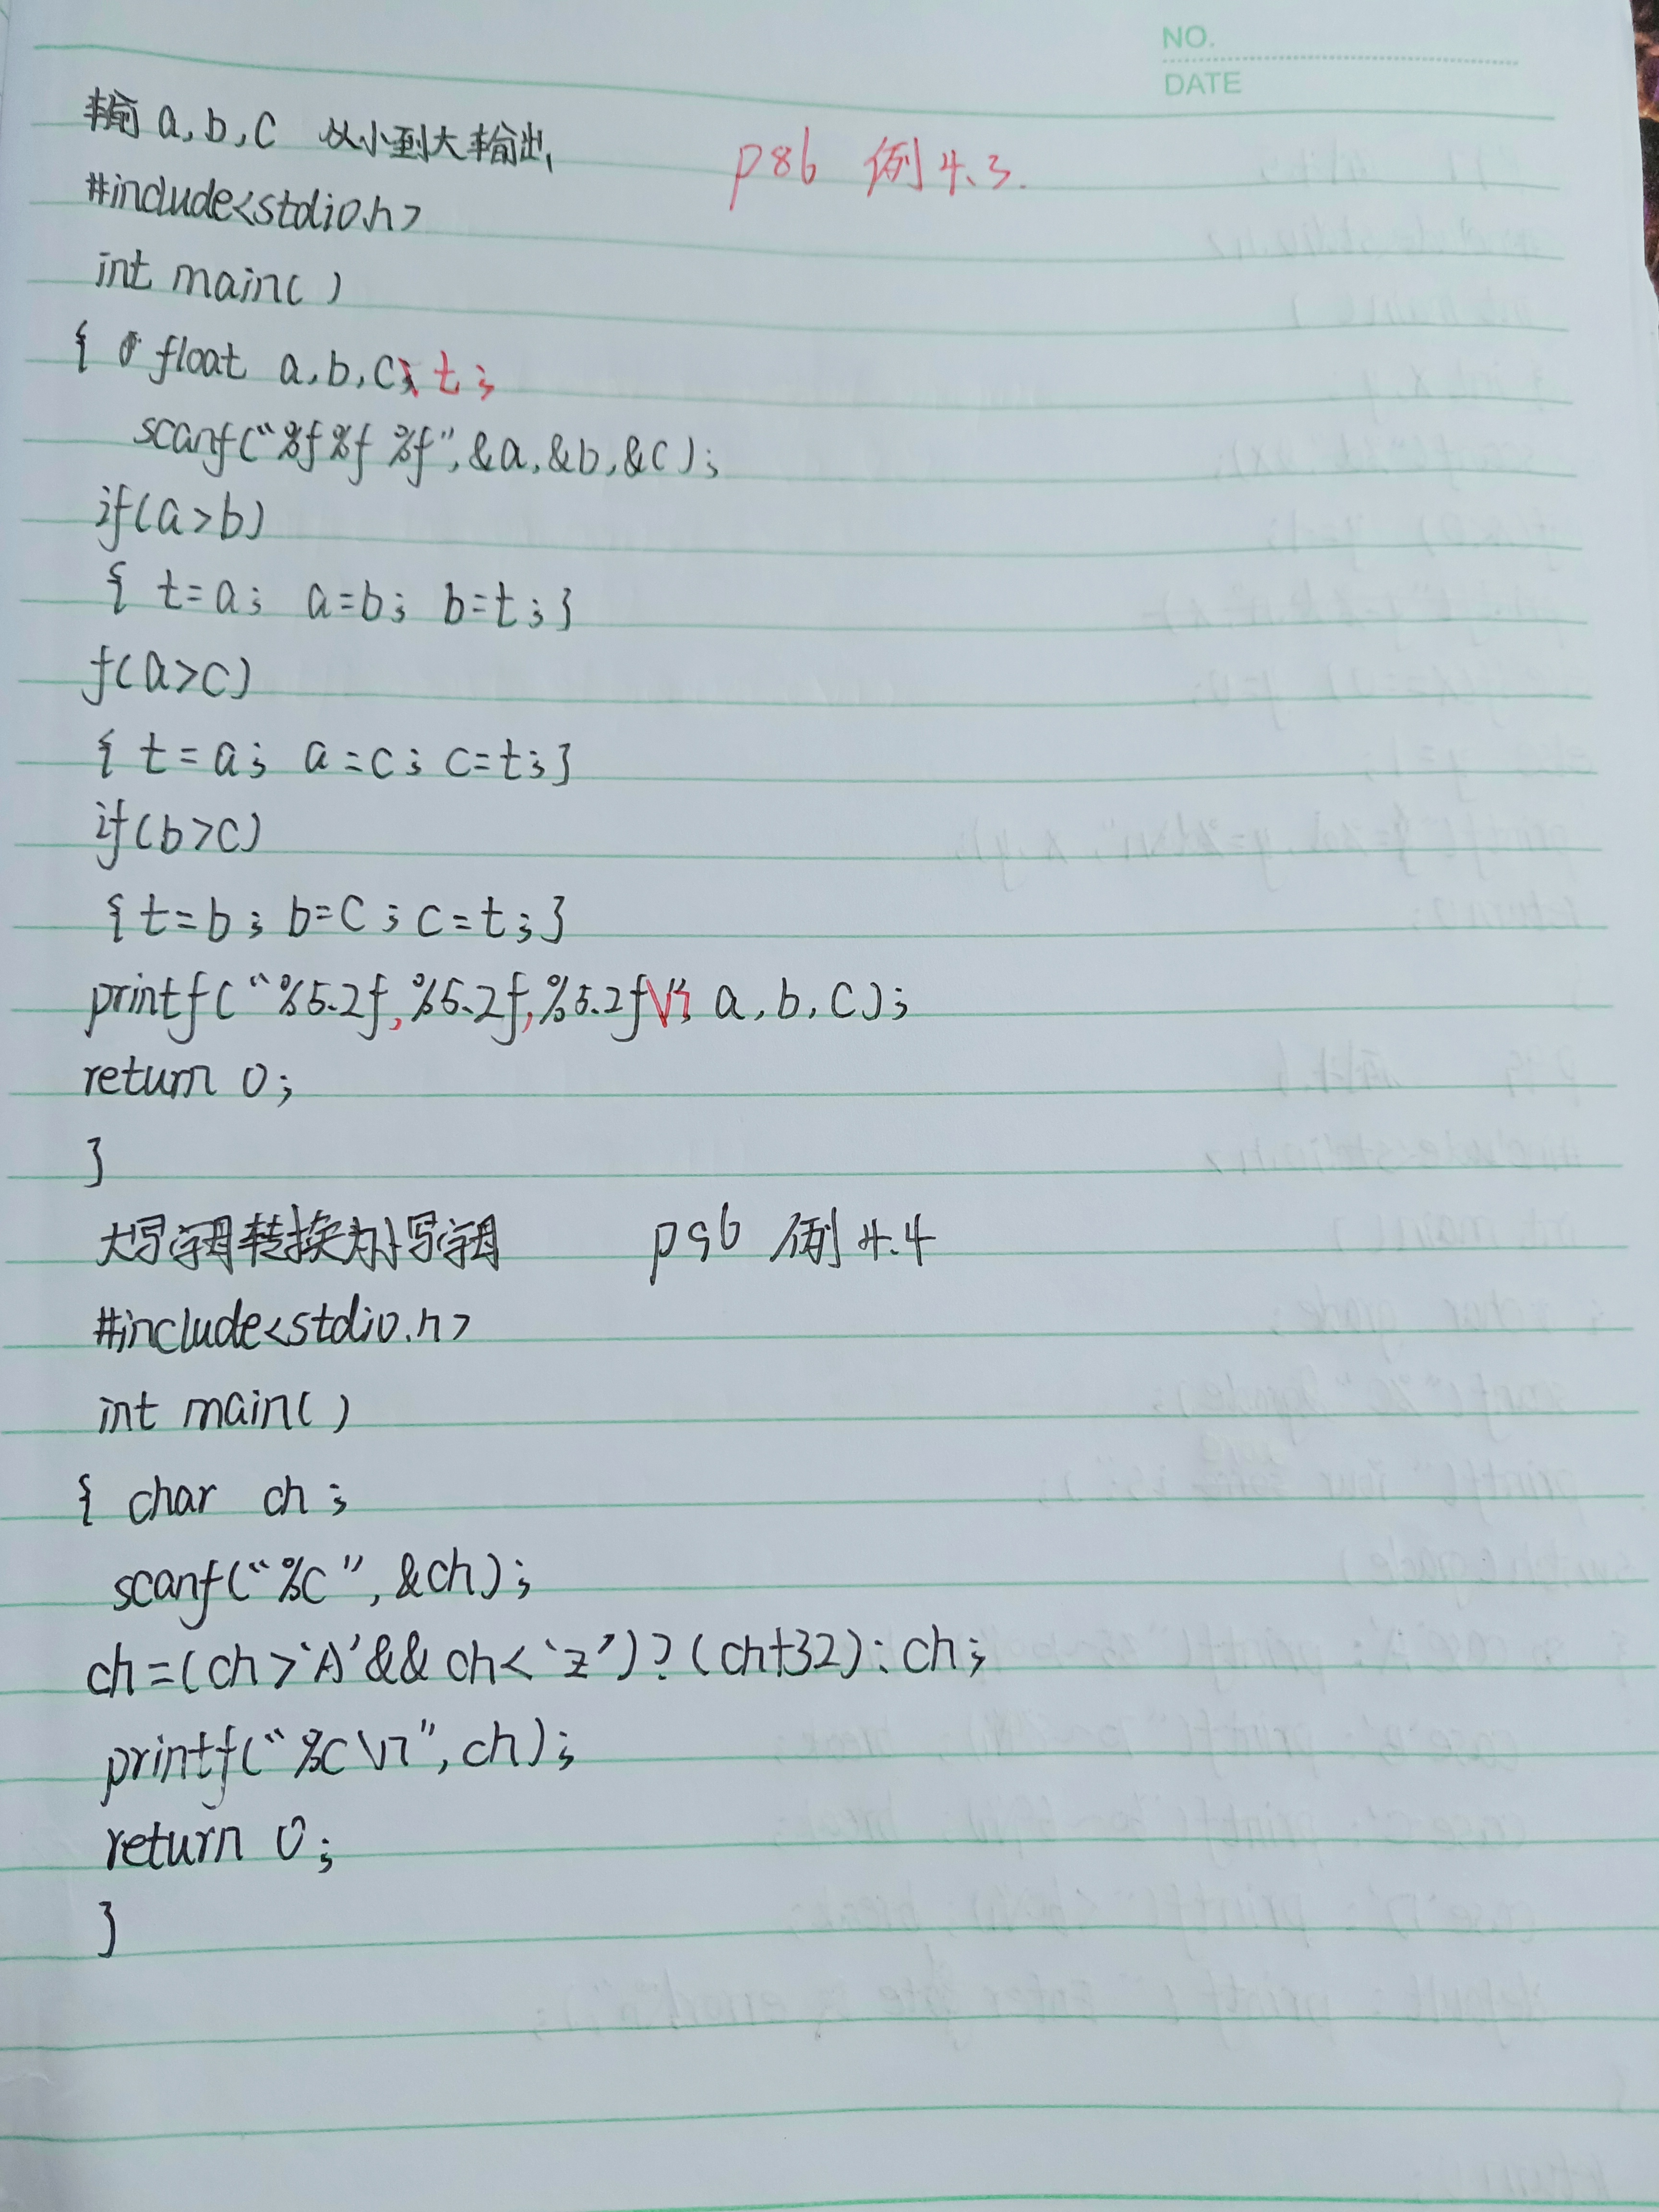 NO.
DATE
输a,b,c 从小到大输出, p86 例4.3.
#include<stdio.h>
int main()
{ float a,b,c, t;
scanf("%f%f %f",&a,&b,&c);
if(a>b)
{ t=a; a=b; b=t;}
f(a>c)
{ t=a; a=c; c=t;}
if(b>c)
{t=b; b=c; c=t;}
printf("%5.2f,%5.2f,%5.2f\n", a,b,c);
return 0;
}
大写字母转换为小写字母 p96 例4.4
#include<stdio.h>
int main()
{ char ch;
scanf("%c",&ch);
ch=(ch>'A'&&ch<'z')?(ch+32):ch;
printf("%c\n",ch);
return 0;
}